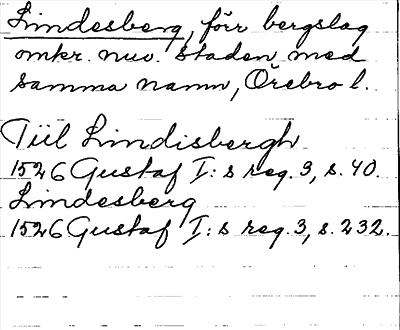 Lindesberg, förr bergslag
omkr. nuv. staden med
samma namn, Örebro l.
Tiil Lindisbergh
1526 Gustaf I:s reg. 3, s. 40.
Lindesberg
1526 Gustaf I:s reg. 3, s. 232.